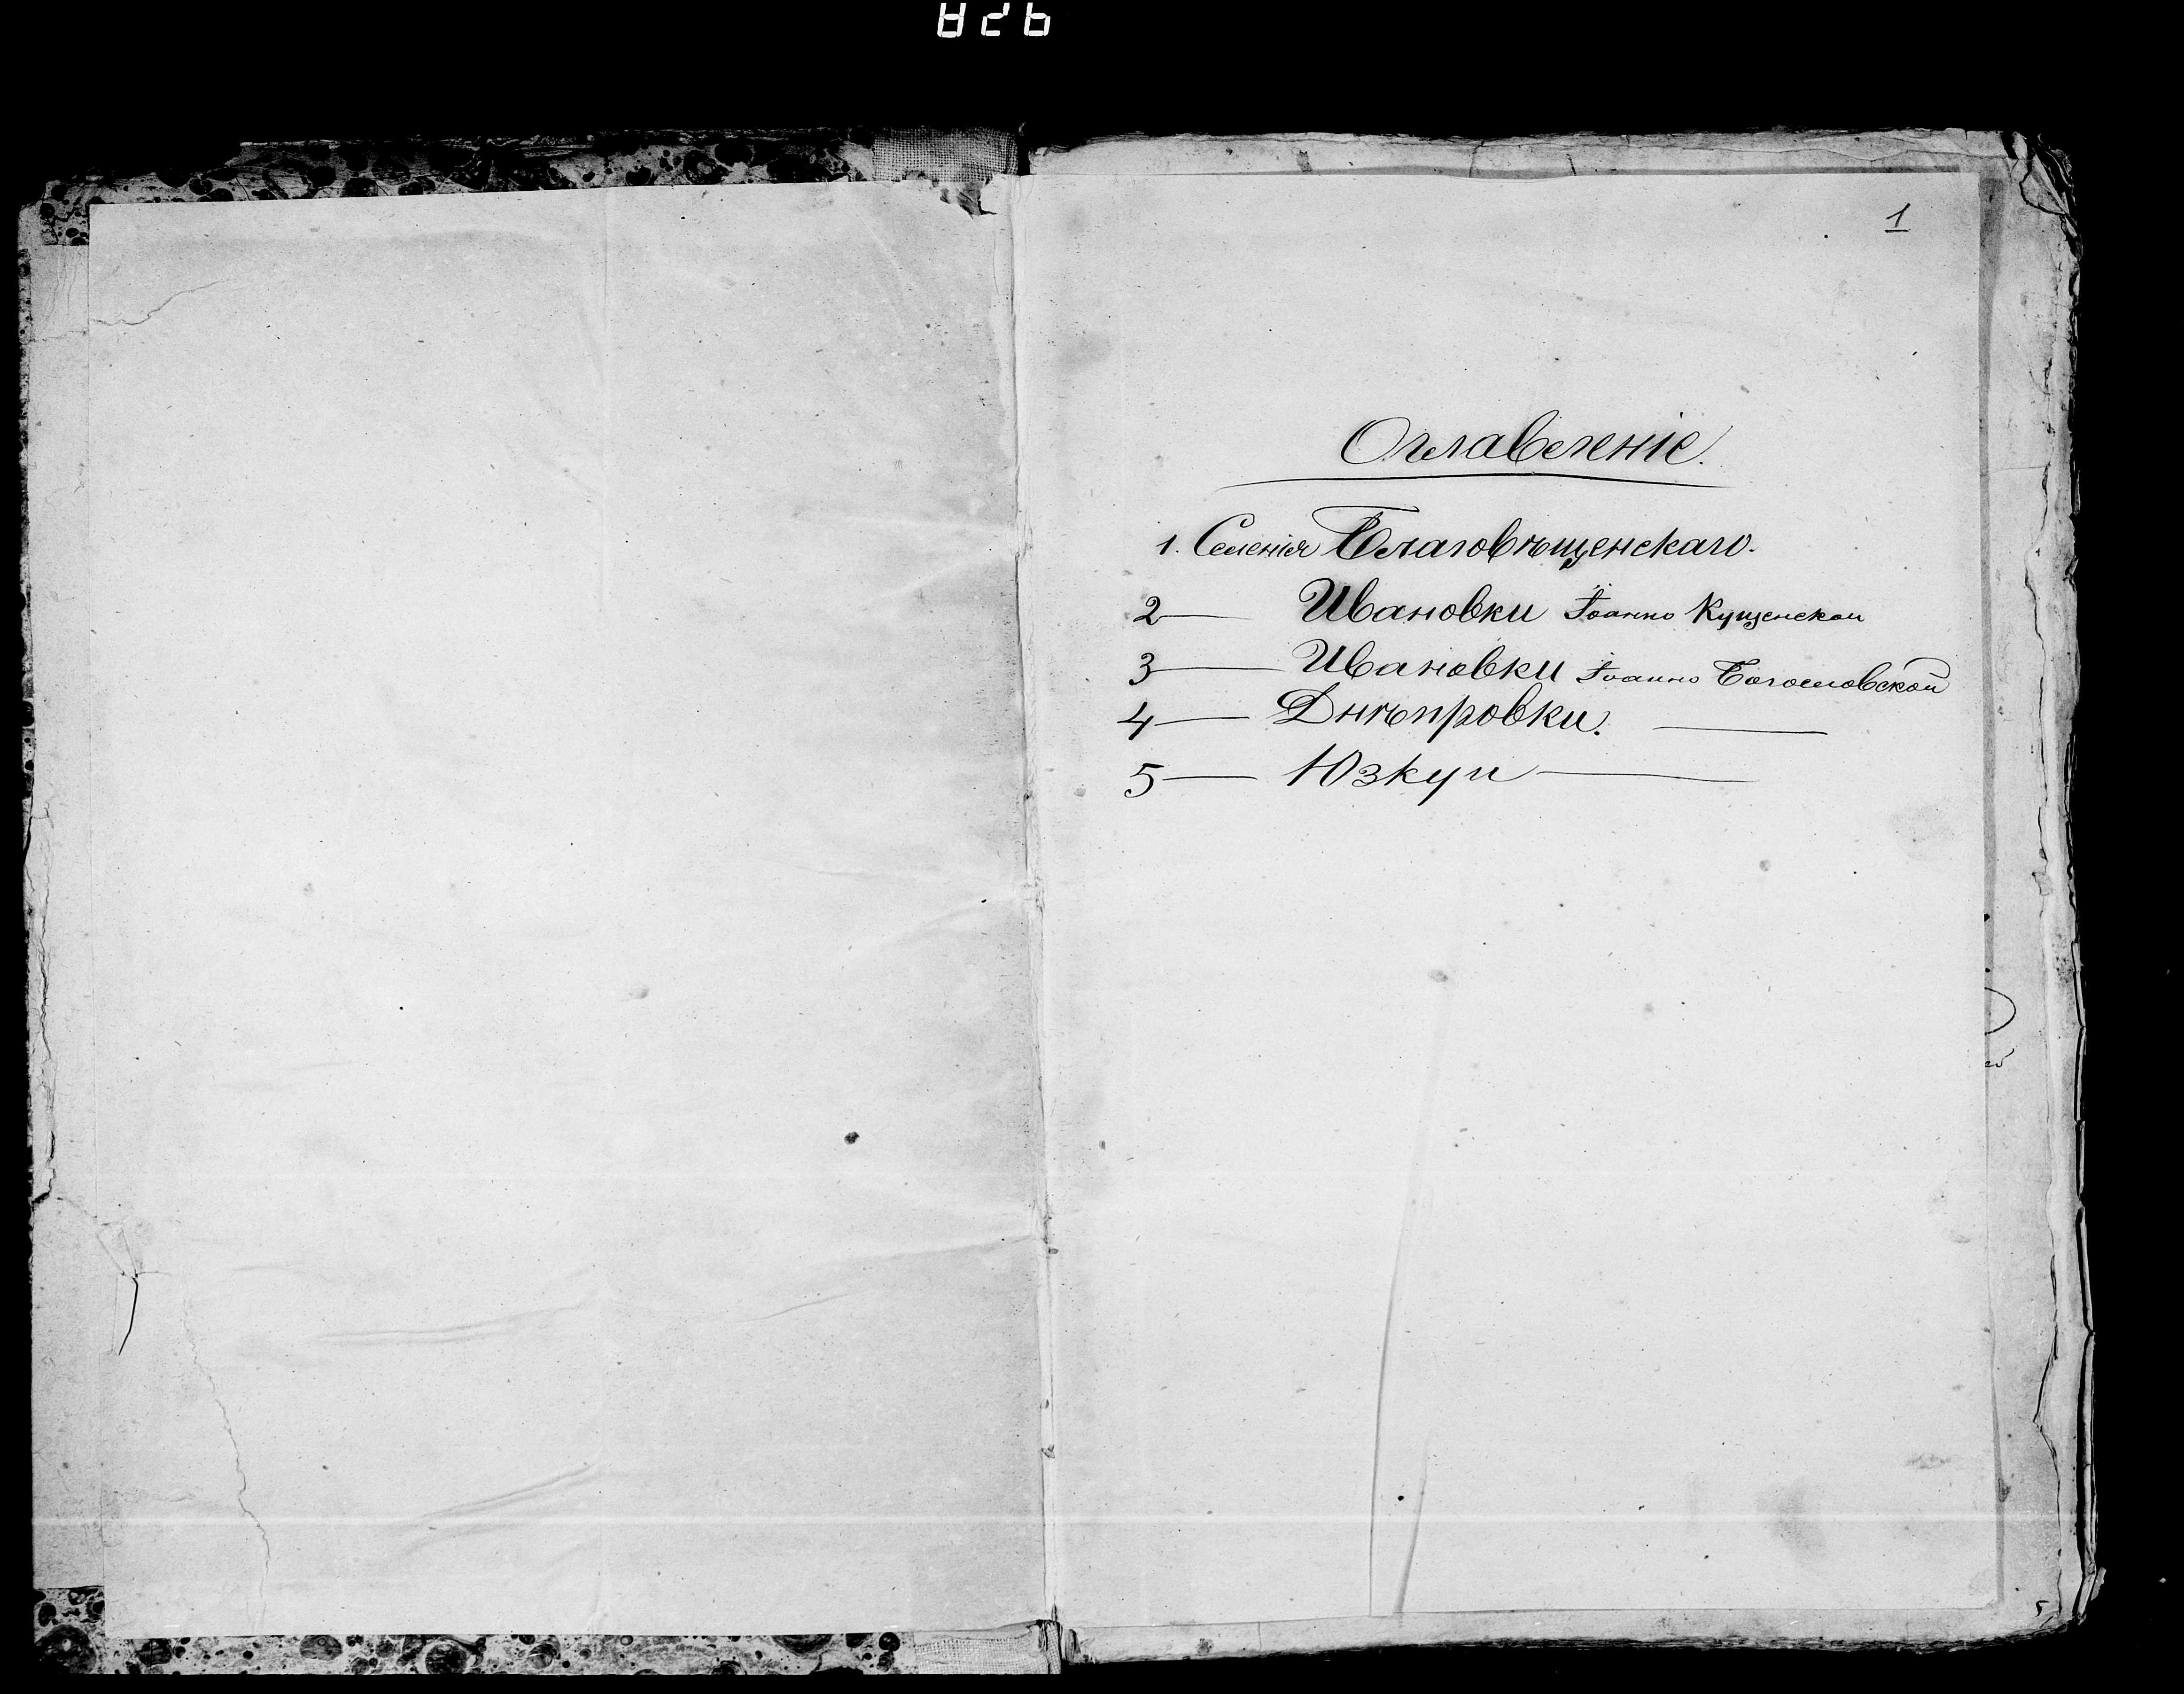 826
1
Оглавленіе.
1. Селенія Благовѣщенскаго.
2 — Ивановки Іоанно Кущенской
3 — Ивановки Іоанно Богословской
4 — Днѣпровки. —
5 — Юзкуи —